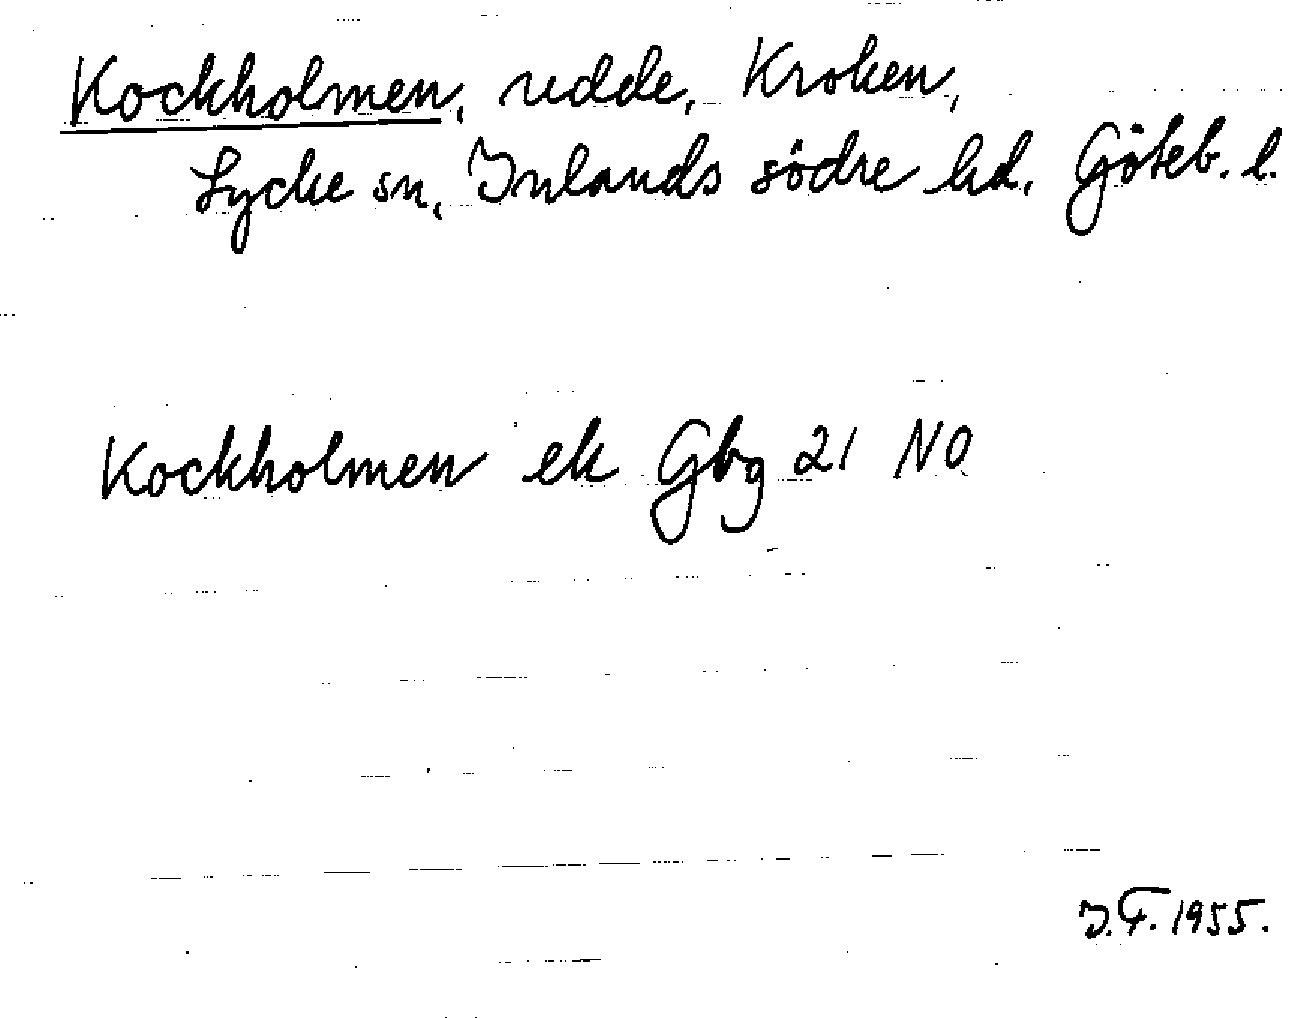 Kockholmen, udde, Kroken,
Lycke sn, Inlands södre hd. Göteb. l.
Kockholmen ek Gbg 21 NO
I.F. 1955.